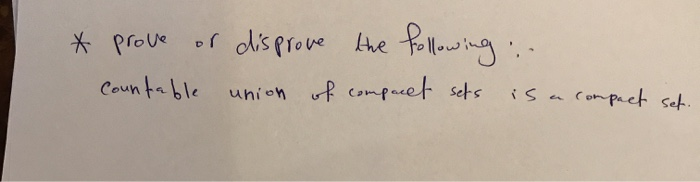 * prove or disprove the following :.
Countable union of compact sets is a compact set.